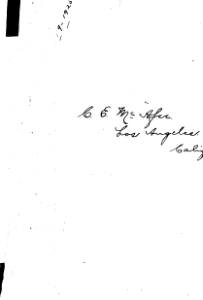 C E Mc Afee
Los Angeles
Calif